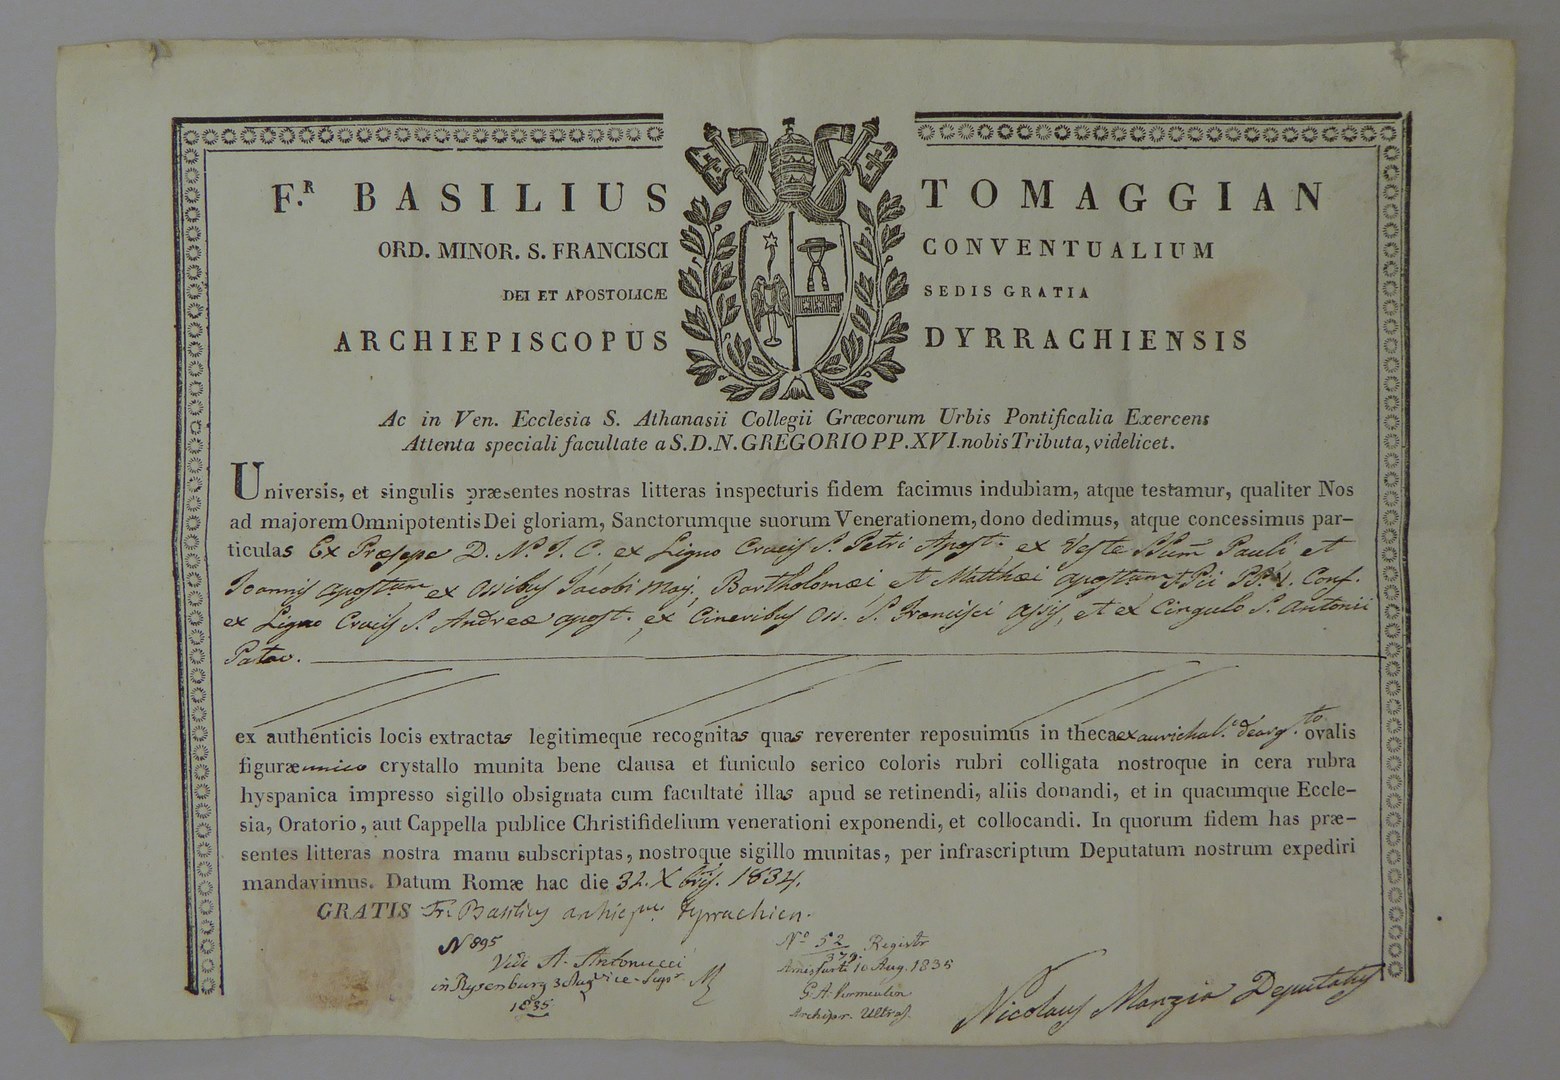 F.R BASILIUS TOMAGGIAN
ORD. MINOR. S. FRANCISCI CONVENTUALIUM
DEI ET APOSTOLICÆ SEDIS GRATIA
ARCHIEPISCOPUS DYRRACHIENSIS
Ac in Ven. Ecclesia S. Athanasii Collegii Græcorum Urbis Pontificalia Exercens
Attenta speciali facultate a S.D.N. GREGORIO PP. XVI. nobis Tributa, videlicet.
Universis, et singulis præsentes nostras litteras inspecturis fidem facimus indubiam, atque testamur, qualiter Nos
ad majorem Omnipotentis Dei gloriam, Sanctorumque suorum Venerationem, dono dedimus, atque concessimus par-
ticulas Ex Præsepe D. N. J. C. ex Ligno Crucis S. Petri Apost. ex Veste SSum Pauli et
Joannis apostum ex ossibus Jacobi Maj. Bartholomæi et Matthæi apostum Pii PP. Conf.
ex Ligno Crucis S. Andreæ apost. ex Cineribus Oss. S. Francisci Assis, et ex Cingulo S. Antonii
Patav.
ex authenticis locis extractas legitimeque recognitas quas reverenter reposuimus in theca ex aurichal. dearg.to ovalis
figuræ unico crystallo munita bene clausa et funiculo serico coloris rubri colligata nostroque in cera rubra
hyspanica impresso sigillo obsignata cum facultate illas apud se retinendi, aliis donandi, et in quacumque Eccle-
sia, Oratorio, aut Cappella publice Christifidelium venerationi exponendi, et collocandi. In quorum fidem has præ-
sentes litteras nostra manu subscriptas, nostroque sigillo munitas, per infrascriptum Deputatum nostrum expediri
mandavimus. Datum Romæ hac die 31. Xbris. 1834.
GRATIS Fr. Basilius archiepus Dyrrachien.
N 895
Vidi A. Antonucci
in Rysenburg 3 Aug Vice-Supr
1835
No 52 Registr
379.
Amesfurti 10 Aug. 1835
G. A. Vermeulen
Archipr. Ultraj.
Nicolaus Manzia Deputatus